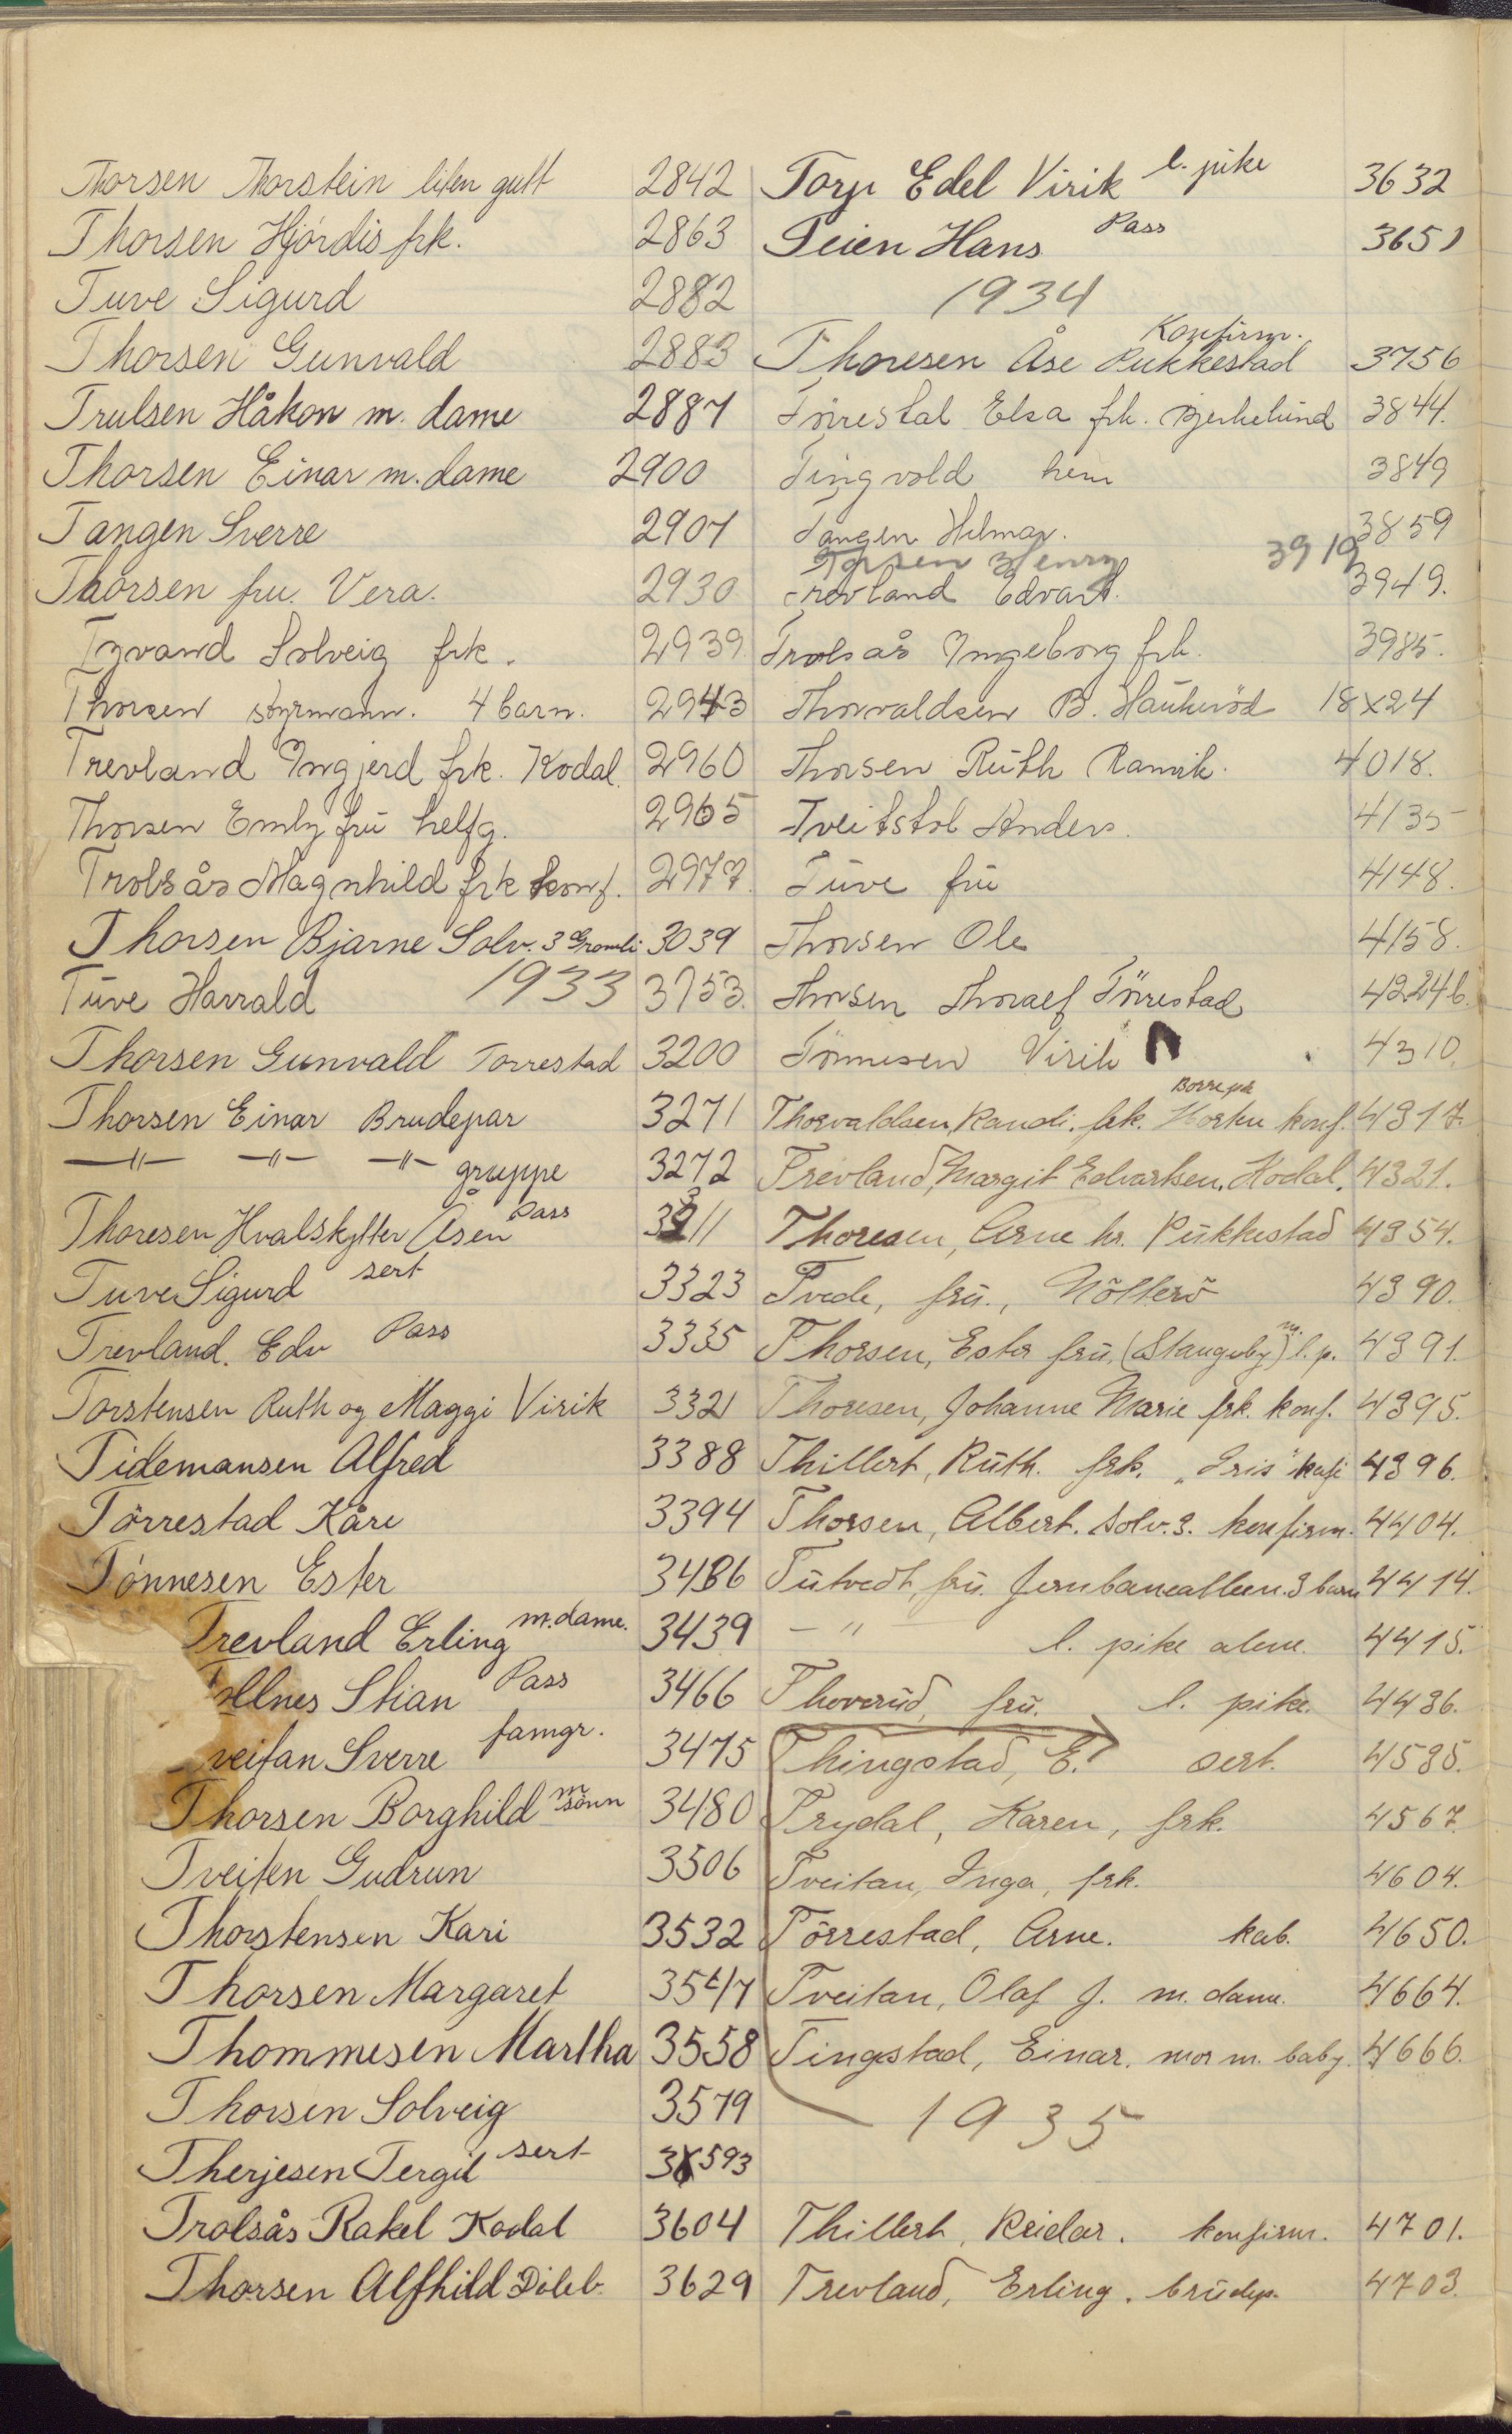 Thorsen Thorstein liten gutt 2842
Thorsen Hjördis frk. 2863
Tuve Sigurd 2882
Thorsen Gunvald 2883
Trulsen Håkon m. dame 2887
Thorsen Einar m. dame 2900
Tangen Sverre 2907
Thorsen fru. Vera. 2930
Tyvand Solveig frk. 2939
Thorsen styrmann. 4 barn. 2943
Trevland Ingjerd frk. Kodal. 2960
Thorsen Emly frü helfg. 2965
Trolsås Magnhild frk konf. 2977
Thorsen Bjarne Solv. 3 Gromli 3039
1933
Tüve Harrald 3153.
Thorsen Gunvald Torrestad 3200
Thorsen Einar Brudepar 3271
—"— —"— —"— gruppe 3272
Thoresen Hvalskytter Åsen Pass 3311
Tuve Sigurd sert 3323
Trevland. Edv Pass 3335
Torstensen Ruth og Maggi Virik 3321
Tidemansen Alfred 3388
Törrestad Kåre 3394
Tönnesen Ester 3486
Trevland Erling m. dame. 3439
ollnes Stian Pass 3466
veitan Sverre famgr. 3475
Thorsen Borghild m sönn 3480
Tveiten Gudrun 3506
Thorstensen Kari 3532
Thorsen Margaret 3547
Thommesen Martha 3558
Thorsen Solveig 3579
Therjesen Tergil sert 3593
Trolsås Rakel Kodal 3604
Thorsen Alfhild Döleb. 3629
Torp Edel Virik l. pike 3632
Teien Hans Pass 3651
1934
Thoresen Åse Pukkestad Konfirm. 3756
Törrestal Elsa frk. Bjerkelund 3844.
Tingvold hem 3849
Tangen Hilmar. 3859
Torsen Henry 3919
Trevland Edvart. 3949.
Trolsås Ingeborg frk. 3985.
Thorvaldsen B. Haukeröd 18x24
Thorsen Rüth Ranvik. 4018.
Tveitstol Anders. 4135
Tüve frü 4148.
Thorsen Ole 4158.
Thorsen Thoralf Törrestad 4224b.
Tönnesen Virik 4310.
Thorvaldsen, Randi. frk. konf. 4317.
Trevland, Margit Edvartsen, Kodal. 4321.
Thoresen, Arne hr. Pükkestad 4354.
Tvede, frü., Nötterö 4390.
Thorsen, Ester frü, (Stangeby) m. l. p. 4391.
Thoresen, Johanne Marie frk. konf. 4395.
Thillert, Rüth. frk. „Iris" kafe 4396.
Thorsen, Albert. Solv. 3. konfirm. 4404.
Tütvedt, frü. Jernbanealleen. 3 barn 4414.
— " — l. pike alene. 4415.
Thoverüd, frü. l. pike. 4436.
Thingstad, E. sert. 4535.
Trydal, Karen, frk. 4567.
Tveitan, Inga, frk. 4604.
Törrestad, Arne. kab. 4650.
Tveitan, Olaf J. m. dame. 4664.
Tingstad, Einar. mor m. baby. 4666.
1935
Thillert, Reidar. konfirm. 4701.
Trevland, Erling. brüdep. 4703.